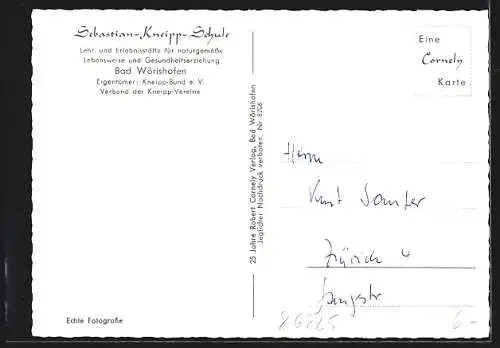 Sebastian-Kneipp-Schule
Lehr- und Erlebnisstätte für naturgemäße
Lebensweise und Gesundheitserziehung
Bad Wörishofen
Eigentümer: Kneipp-Bund e. V.
Verband der Kneipp-Vereine
Echte Fotografie
25 Jahre Robert Cornely Verlag, Bad Wörishofen
Jeglicher Nachdruck verboten. Nr. 6206
Eine
Cornely
Karte
Herrn
Kurt Sauter
Zürich 4
6.-